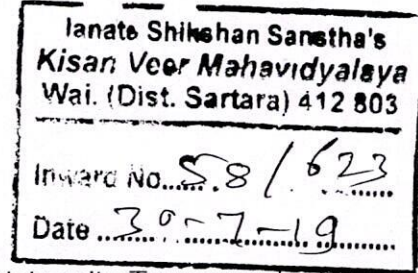 Janata Shikshan Sanstha's
Kisan Veer Mahavidyalaya
Wai. (Dist. Sartara) 412 803
Inward No. 58 / 623
Date 30-7-19